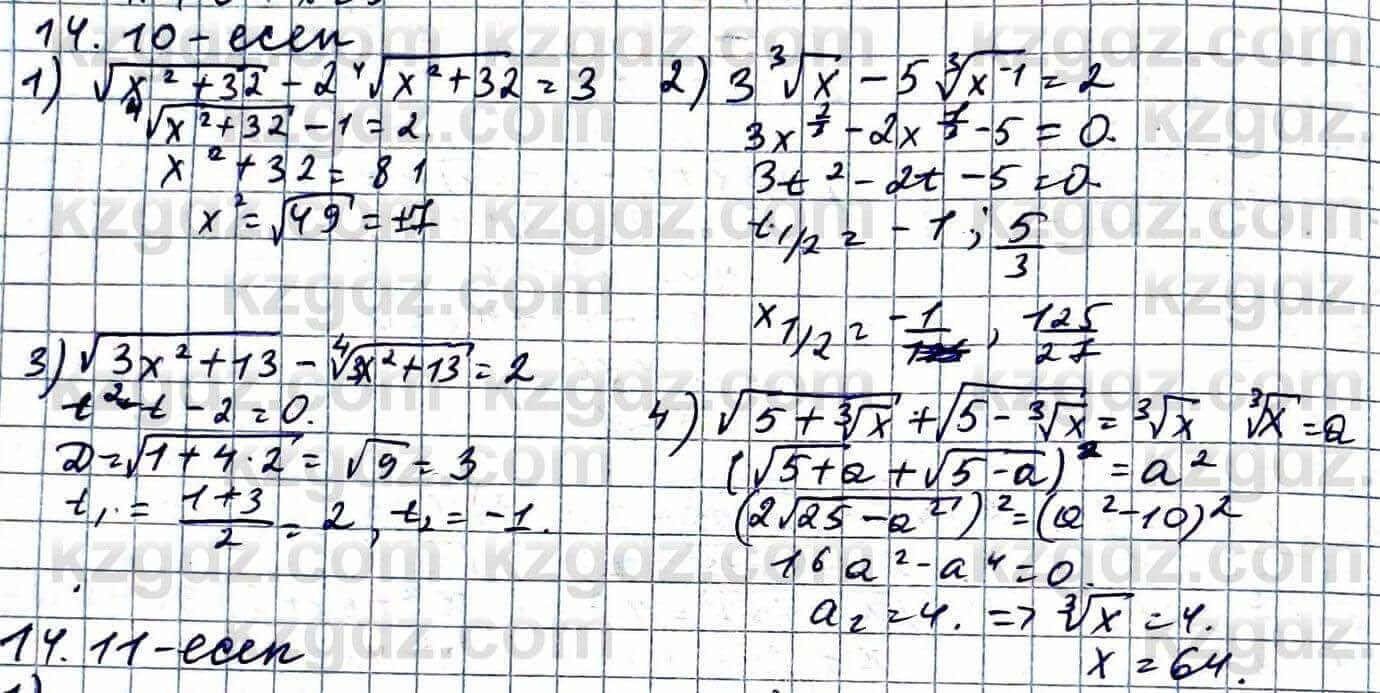 14.10-есеп
1) √(x² + 32) - 2 ⁴√(x² + 32) = 3
⁴√(x² + 32) - 1 = 2
x² + 32 = 81
x² = √49 = ±7
2) 3 ³√x - 5 ³√(x⁻¹) = 2
3x^(2/3) - 2x^(1/3) - 5 = 0.
3t² - 2t - 5 = 0.
t₁/₂ = -1; 5/3
x₁/₂ = -1, 125/27
3) √(3x² + 13) - ⁴√(3x² + 13) = 2
t² - t - 2 = 0.
D = √(1 + 4·2) = √9 = 3
t₁ = (1+3)/2 = 2, t₂ = -1.
4) √(5 + ³√x) + √(5 - ³√x) = ³√x   ³√x = a
(√(5+a) + √(5-a))² = a²
(2√(25 - a²))² = (a² - 10)²
16a² - a⁴ = 0.
a₂ = 4. => ³√x = 4.
x = 64.
14.11-есеп
1)
kzgdz.com